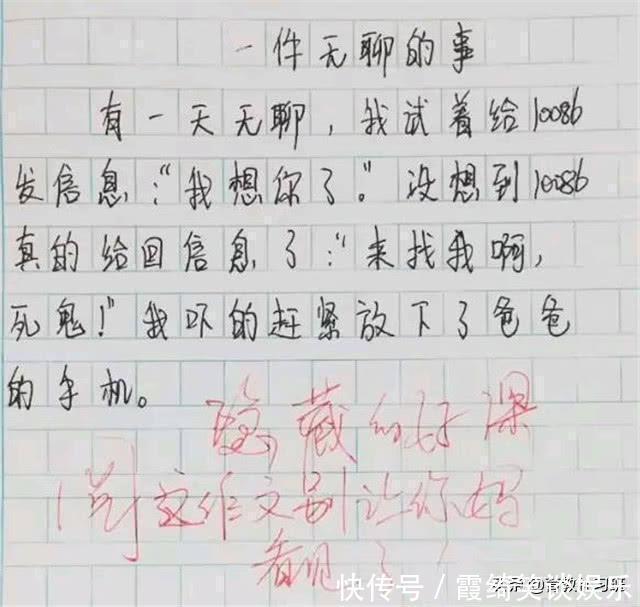 一件无聊的事
有一天无聊，我试着给10086
发信息：“我想你了。”没想到10086
真的给回信息了：“来找我啊，
死鬼！”我吓的赶紧放下了爸爸
的手机。
隐藏的好深
这作文别让你妈
看见！
快传号／霞绮笑谈娱乐